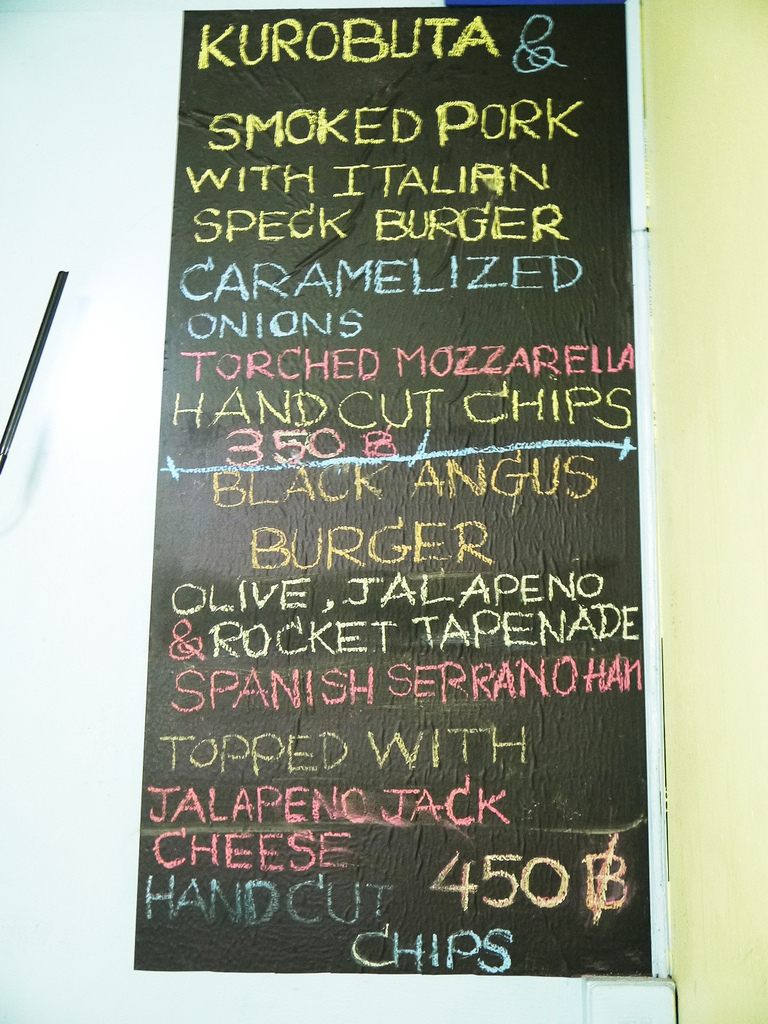 KUROBUTA &
SMOKED PORK
WITH ITALIAN
SPECK BURGER
CARAMELIZED
ONIONS
TORCHED MOZZARELLA
HAND CUT CHIPS
350 ฿
BLACK ANGUS
BURGER
OLIVE, JALAPENO
& ROCKET TAPENADE
SPANISH SERRANO HAM
TOPPED WITH
JALAPENO JACK
CHEESE
450 ฿
HAND CUT
CHIPS